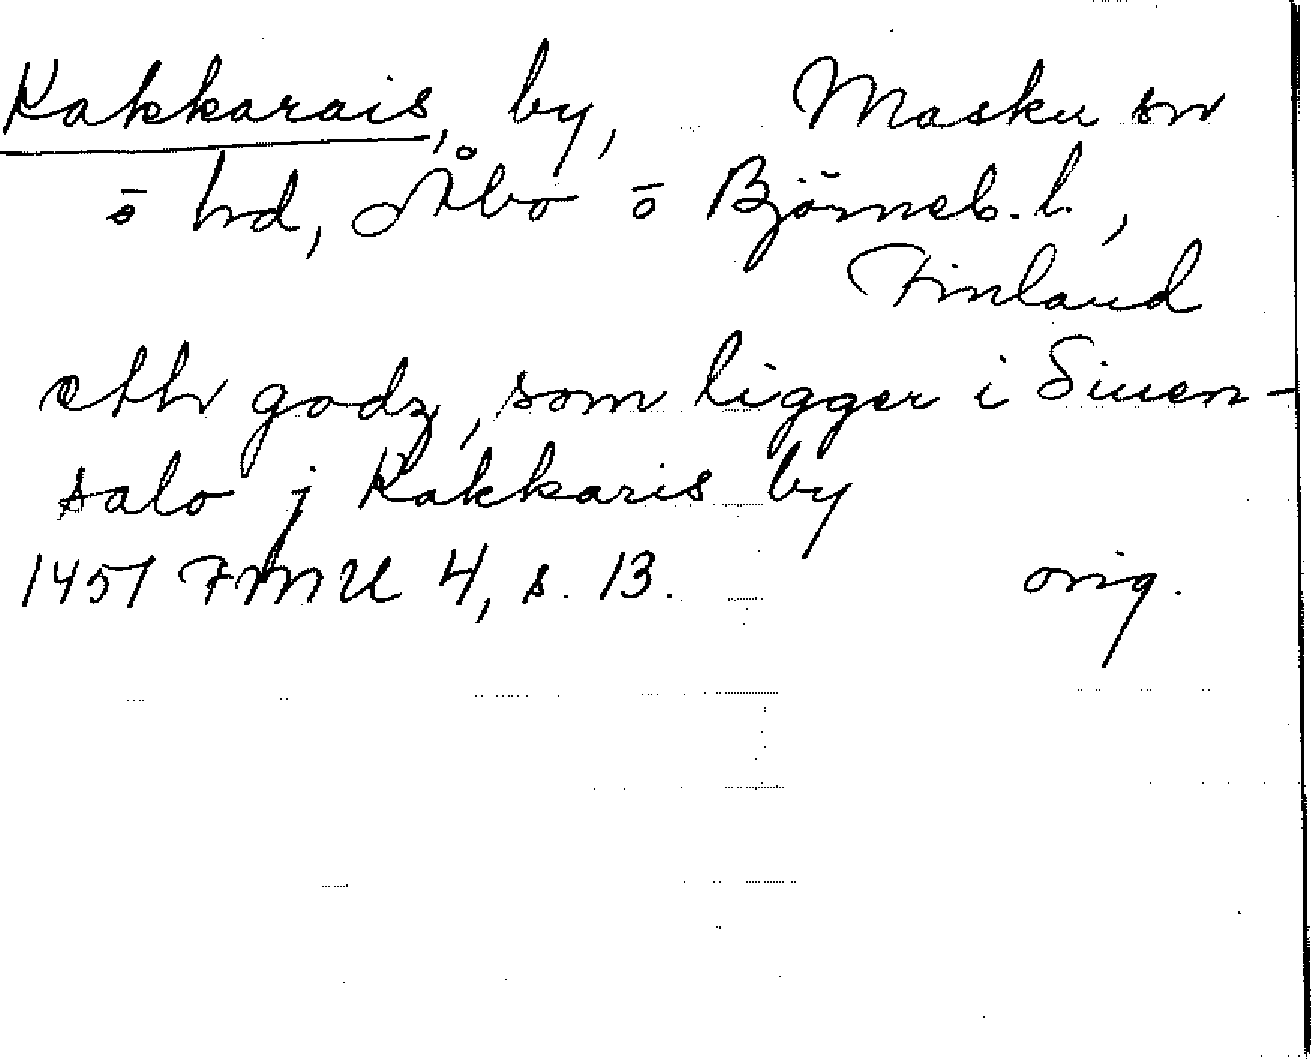 Kakkarais, by, Masku sn
o hd, Åbo o Björneb. l.,
Finland
etht godz, som ligger i Siuen-
salo j Kakkaris by
1451 FMU 4, s. 13. orig.